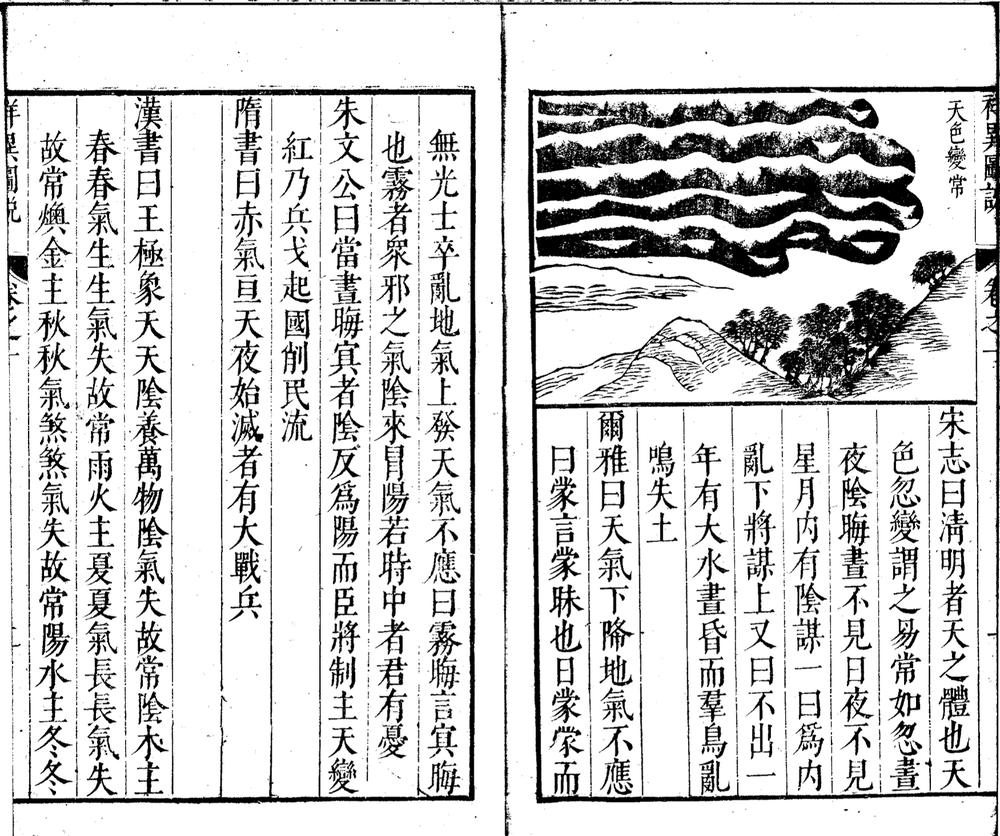 祥異圖說
卷之一
天色變常
宋志曰淸明者天之體也天
色忽變謂之易常如忽晝
夜陰晦晝不見日夜不見
星月內有陰謀一曰爲內
亂下將謀上又曰不出一
年有大水晝昏而羣鳥亂
鳴失土
爾雅曰天氣下降地氣不應
曰䝉言䝉昧也日䝉䝉而
無光士卒亂地氣上發天氣不應曰霧晦言冥晦
也霧者衆邪之氣陰來冒陽若時中者君有憂
朱文公曰當晝晦冥者陰反爲陽而臣將制主天變
紅乃兵戈起國削民流
隋書曰赤氣亘天夜始滅者有大戰兵
漢書曰王極象天天陰養萬物陰氣失故常陰木主
春春氣生生氣失故常雨火主夏夏氣長長氣失
故常燠金主秋秋氣煞煞氣失故常陽水主冬冬
祥異圖說
卷之一